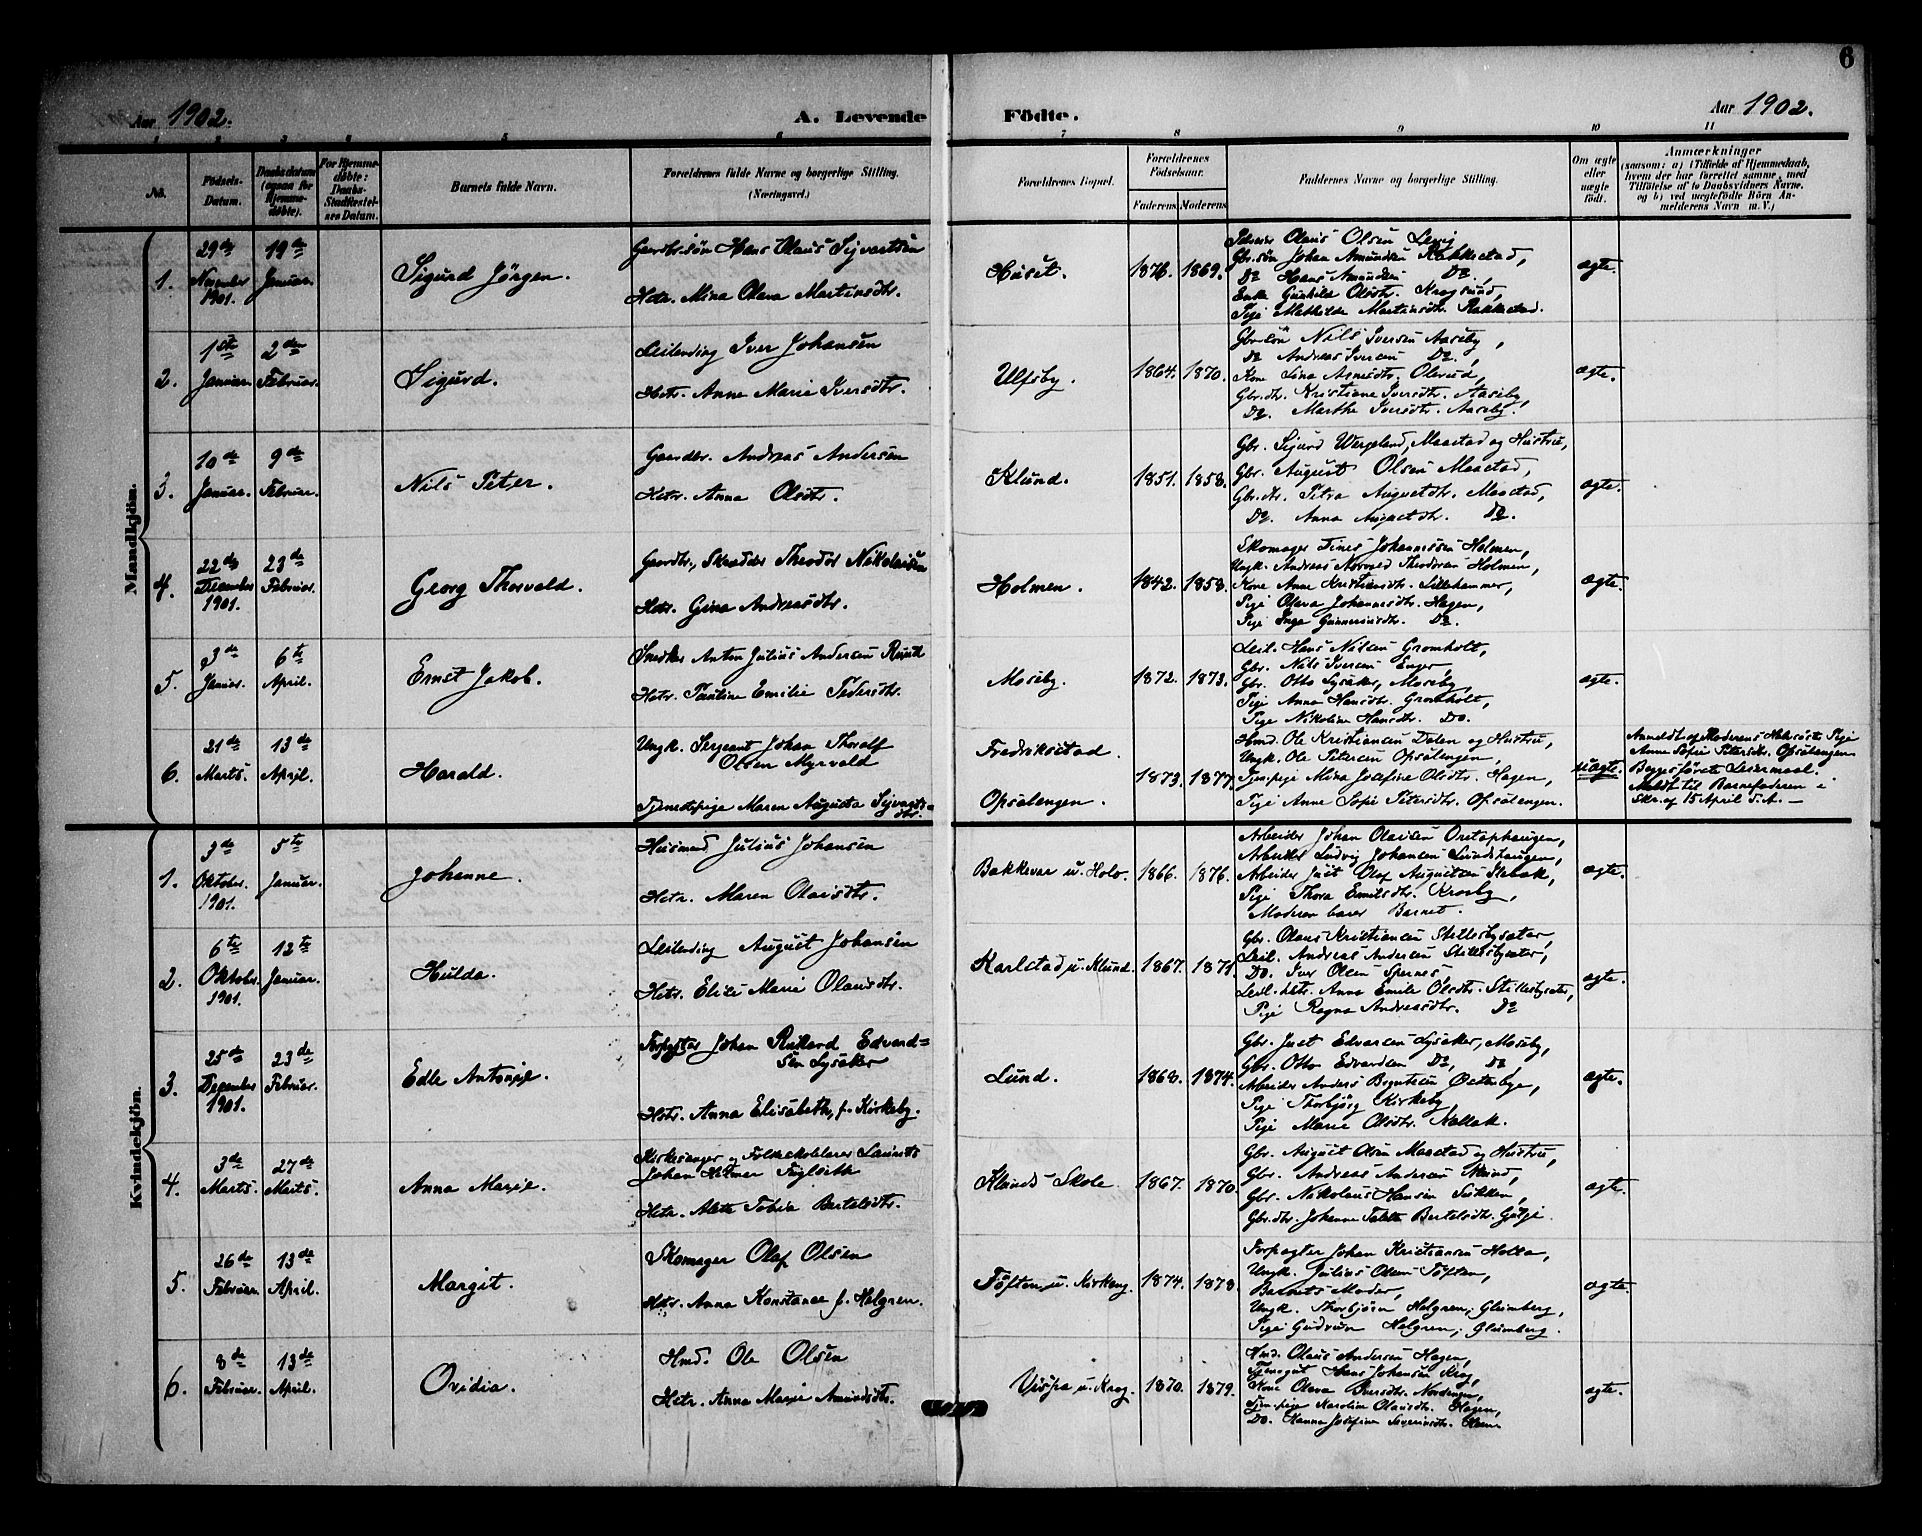 6
Aar 1902.
A. Levende
Födte.
Aar 1902.
1 2 3 4 5 6 7 8 9 10 11
No.
Födsels-Datum.
Daabsdatum (ogsaa for Hjemmedøbte).
For Hjemmedøbte: Daabs-Stadfæstelsens Datum.
Barnets fulde Navn.
Forældrenes fulde Navne og borgerlige Stilling. (Næringsvei.)
Forældrenes Bopæl.
Forældrenes Fødselsaar.
Faderens.
Moderens.
Faddernes Navne og borgerlige Stilling.
Om ægte eller uægte født.
Anmærkninger
(saasom: a) i Tilfælde af Hjemmedaab, hvem der har forrettet samme, med Tilføielse af to Daabsvidners Navne, og b) ved uægtefødte Börn Anmelderens Navn m. V.)
Mandkjön.
1.
29de November 1901.
19de Januar.
Sigurd Jörgen.
Gaardbr.søn Hans Olaus Sijvertsen
Hstr. Mina Olava Martinsdtr.
Huset.
1876. 1869.
Olaus Olsen
Gbr.søn Johan Amundsen Rakkestad,
Do Hans Amundsen Do,
Enke Gunhilde Olsdtr. Krogsund,
Pige Mathilde Martinsdtr. Rakkestad.
ægte.
2.
1ste Januar.
2den Februar.
Sigurd.
Leilending Iver Johansen
Hstr. Anne Marie Iversdtr.
Ulfsby.
1864. 1870.
Gbr.søn Nils Iversen Aaseby,
Do Andreas Iversen Do,
Kone Lina Agnesdtr.
Gbr.dtr. Kristiane Iversdtr. Aaseby,
Do. Marthe Iversdtr. Aaseby.
ægte.
3.
10de Januar.
9de Februar.
Nils Peter.
Gaardbr. Andreas Andersen
Hstr. Anna Olsdtr.
Klund.
1851. 1858.
Gbr. Sigurd Wergeland, Maastad og Hustru,
Gbr. August Olsen Maastad,
Gbr.dtr. Petra Augustdtr. Maastad,
Do. Anna Augustdtr. Do.
ægte.
4.
22de December 1901.
23de Februar.
Georg Thorvald.
Gaardbr., Skrædder Theodor Nikolaisen
Hstr. Gina Andreasdtr.
Holmen.
1842. 1858.
Skomager Tines Johannssen Holmen,
Ungk. Andreas Norvald Theodorsen Holmen,
Kone Anne Kristiansdtr. Lillehammer,
Pige Olava Johannesdtr. Hagen,
Pige Inga Gunneriusdtr. Do.
ægte.
5.
3de Januar.
6te April.
Ernst Jakob.
Snedker Anton Julius Andersen Ruud
Hstr. Pauline Emilie Pedersdtr.
Moseby.
1872. 1873.
Leil. Hans Nilsen Gromholt,
Gbr. Nils Iversen Enger
Gbr. Otto Lysaker, Moseby,
Pige Anna Hansdtr. Gromholt,
Pige Nikoline Hansdtr. Do.
ægte.
6.
21de Marts.
13de April.
Harald.
Ungk. Sergeant Johan Thoralf
Olsen Myrvold
Tjenestepige Maren Augusta Sijvertsdtr.
Fredriksstad
Opsalengen.
1873. 1877.
Hmd. Ole Kristiansen Dalen og Hustru,
Ungk. Ole Petersen Opsalengen,
Tjen.pige Mina Josefine Olsdtr. Hagen,
Pige Anne Sofie Petersdtr. Opsalengen.
uægte.
Anmeldt af Moderens Halvsøster Pige
Anne Sofie Petersdtr. Opsalengen
Begges første Leiermaal.
Meldt til Barnefaderen i
Skr. af 15 April d. A. —
Kvindekjön.
1.
3de Oktober 1901.
5te Januar.
Johanne.
Husmand Julius Johansen
Hstr. Maren Olaisdtr.
Bakkevar u. Holo.
1866. 1876.
Arbeider Johan Olaisen
Arbeider Ludvig Johansen Lundshaugen,
Arbeider Just Olaf Augustsen Slebak,
Pige Thora Emilsdtr. Krosby,
Moderen barer Barnet.
ægte.
2.
6te Oktober 1901.
12te Januar.
Hulda.
Leilending August Johansen
Hstr. Elise Marie Olausdtr.
Karlstad u. Klund.
1867. 1871.
Gbr. Olaus Kristiansen Stillesbysæter,
Leil. Andreas Andersen Stillesbysæter,
Do. Iver Olsen Spernes
Leil.dtr. Anna Emilie Olsdtr. Stillesbysæter,
Pige Ragna Andreasdtr. Do
ægte.
3.
25de December 1901.
23de Februar.
Edle Antonie.
Forpagter Johan Rikard Edvard=
sen Lysaker
Hstr. Anna Elisabeth, f. Kirkeby.
Lund.
1868. 1874.
Gbr. Just Edvardsen Lysaker, Moseby,
Gbr. Otto Edvardsen Do, Do,
Arbeider Anders Berntsen Østerbye,
Pige Thorbjørg Kirkeby,
Pige Marie Olsdtr. Kallak.
ægte.
4.
3de Marts.
27de Marts.
Anna Marie.
Kirkesanger og Folkeskolelærer Laurits
Johan Hilmer Fuglseth
Hstr. Alette Tobia Bertelsdtr.
Klunds Skole
1867. 1870.
Gbr. August Olsen Maastad og Hustru,
Gbr. Andreas Andersen Klund,
Gbr. Nikolaus Hansen Sikken,
Gbr.dtr. Johanne Talette Bertelsdtr. Gylje.
ægte.
5.
26de Februar.
13de April.
Margit.
Skomager Olaf Olsen
Hstr. Anna Konstance f. Helgren.
Töften u. Kirkeng
1874. 1878.
Forpagter Johan Kristiansen Holta,
Ungk. Julius Olsen Töften,
Barnets Moder,
Ungk. Thorbjørn Helgren, Glimberg,
Pige Gudrun Helgren, Glimberg.
ægte.
6.
8de Februar.
13de April.
Ovidia.
Hmd. Ole Olsen
Hstr. Anna Marie Amundsdtr.
Vispa u. Krog.
1870. 1879.
Hmd. Olaus Andersen Hagen,
Tjenegut Hans Johansen Krog,
Kone Olava Iversdtr. Nordengen,
Tjen.pige Karoline Olausdtr. Hagen,
Do. Hanna Josefine Severinsdtr.
ægte.